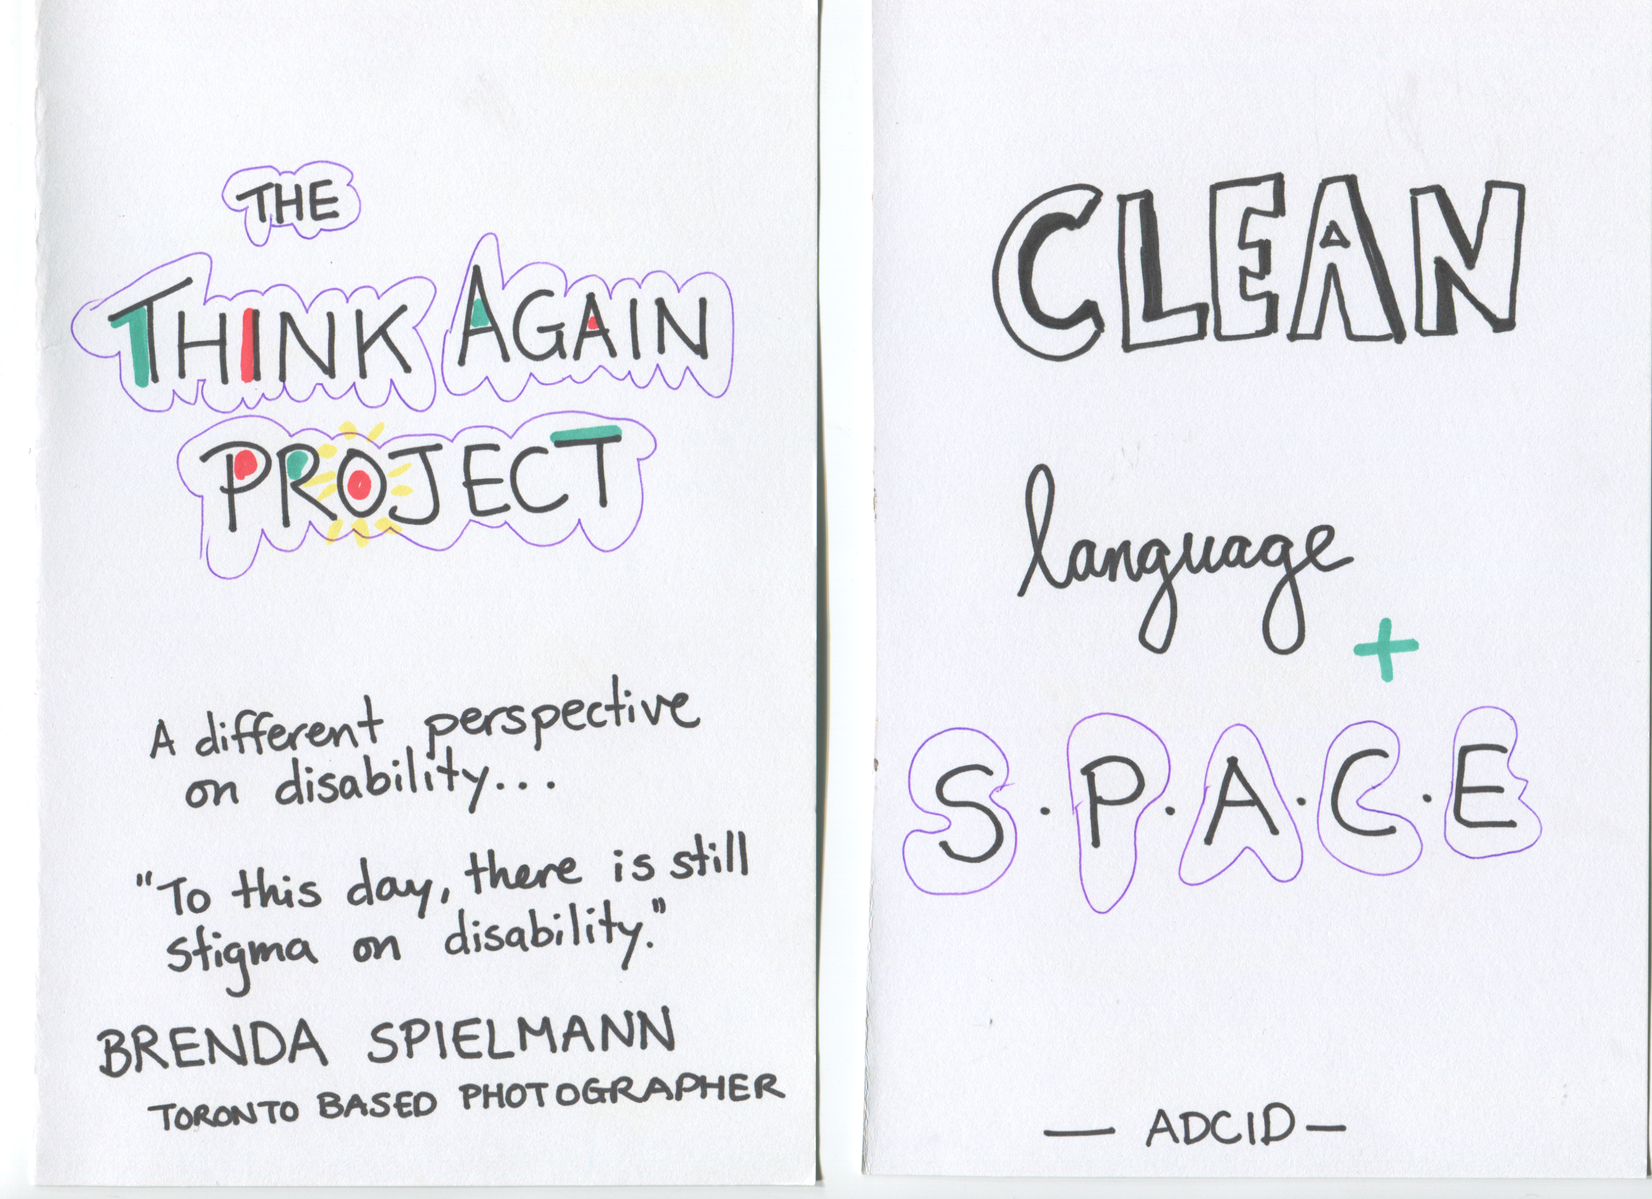 THE
THINK AGAIN
PROJECT
A different perspective
on disability...
"To this day, there is still
stigma on disability."
BRENDA SPIELMANN
TORONTO BASED PHOTOGRAPHER
CLEAN
language
+
S.P.A.C.E
— ADCID —